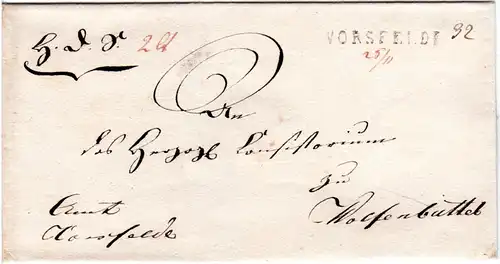 H. D. S.
VORSFELDE 32
25/11
An
das Herzogl Consistorium
zu
Wolfenbüttel
Amt
Vorsfelde